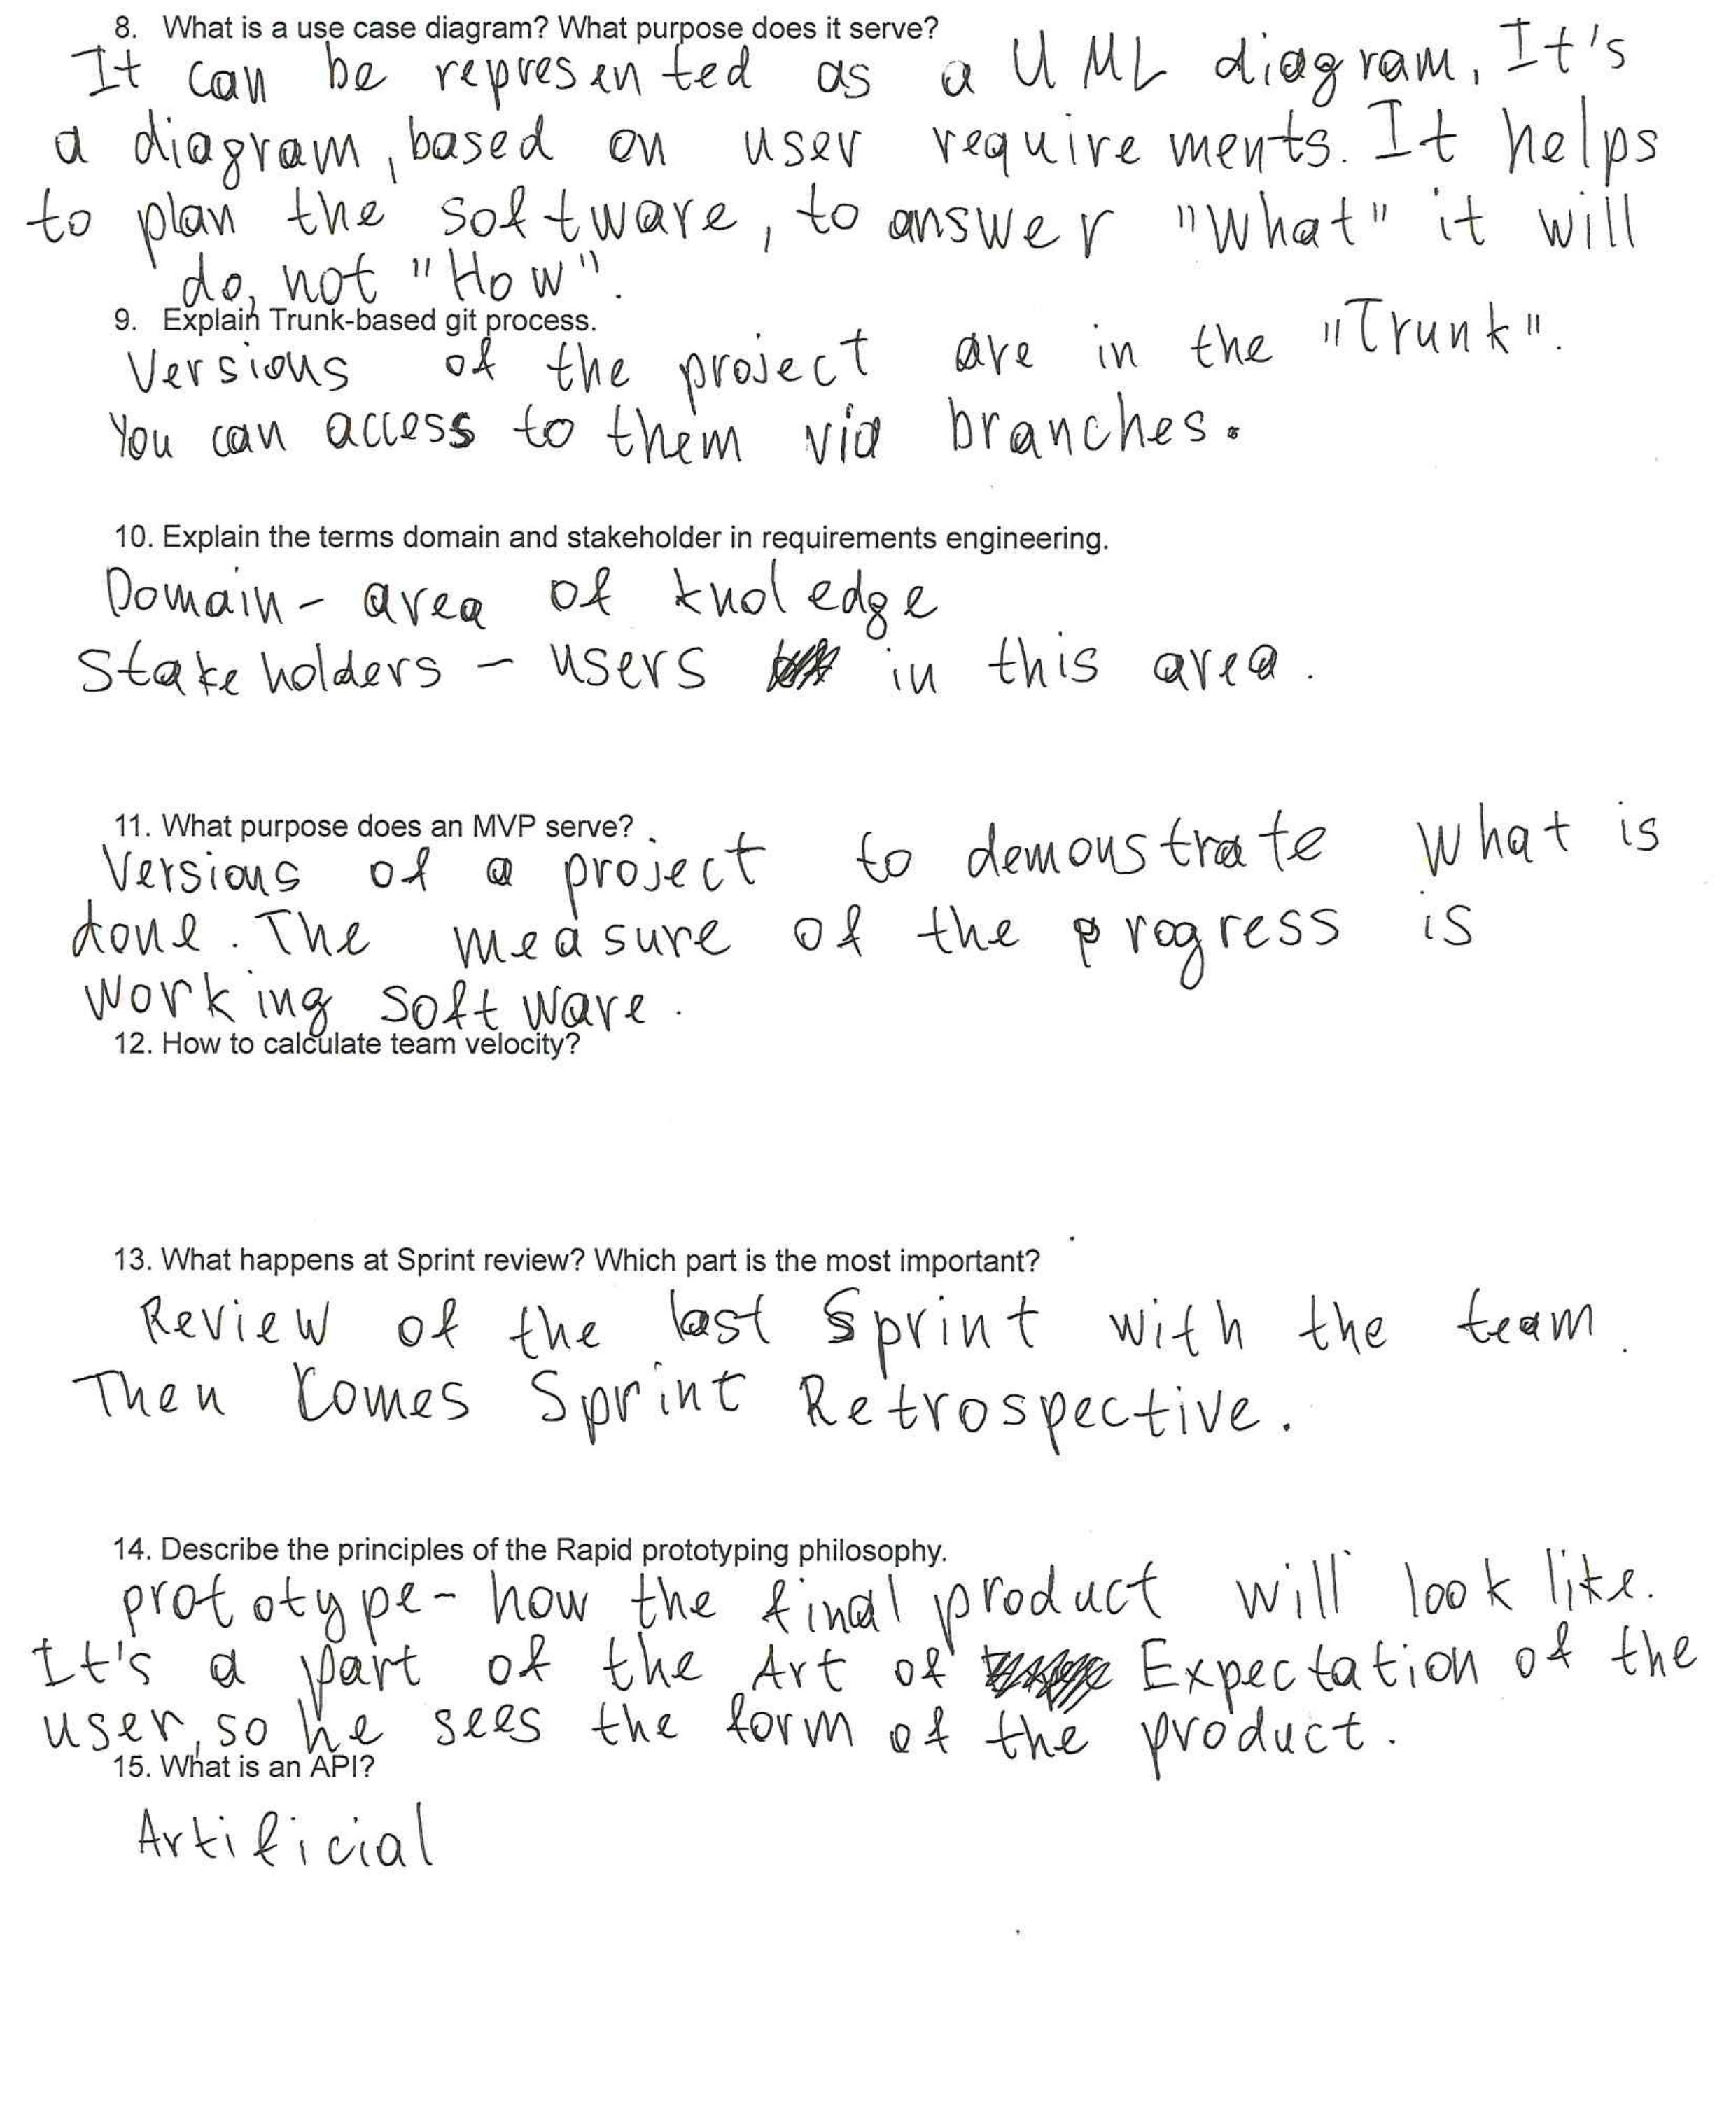 8. What is a use case diagram? What purpose does it serve?
It can be represented as a UML diagram. It's
a diagram, based on user requirements. It helps
to plan the software, to answer "What" it will
do, not "How".
9. Explain Trunk-based git process.
Versions of the project are in the "Trunk".
You can access to them via branches.
10. Explain the terms domain and stakeholder in requirements engineering.
Domain - area of knoledge
Stakeholders - users in this area.
11. What purpose does an MVP serve?
Versions of a project to demonstrate what is
done. The measure of the progress is
working software.
12. How to calculate team velocity?
13. What happens at Sprint review? Which part is the most important?
Review of the last Sprint with the team.
Then comes Sprint Retrospective.
14. Describe the principles of the Rapid prototyping philosophy.
prototype - how the final product will look like.
It's a part of the Art of Expectation of the
user, so he sees the form of the product.
15. What is an API?
Artificial